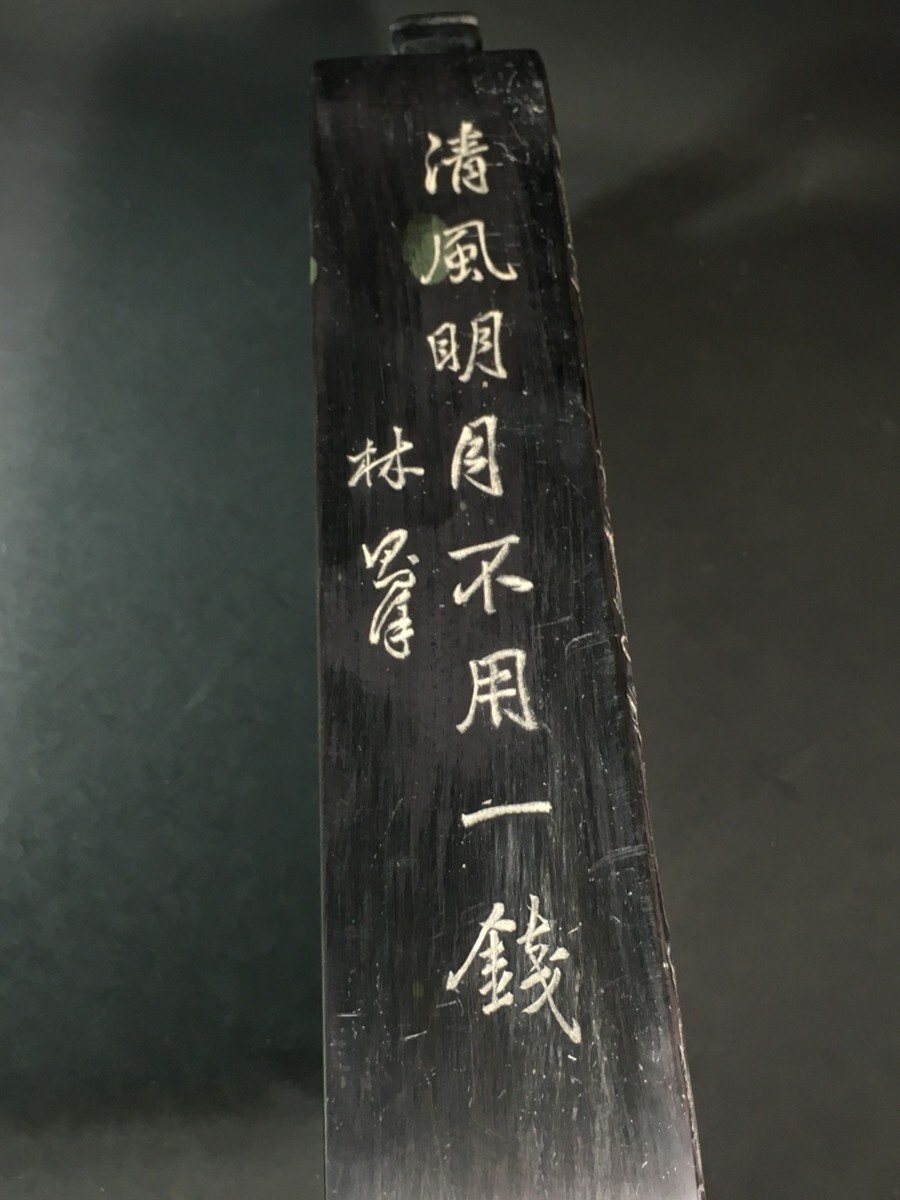 清風明月不用一錢
林